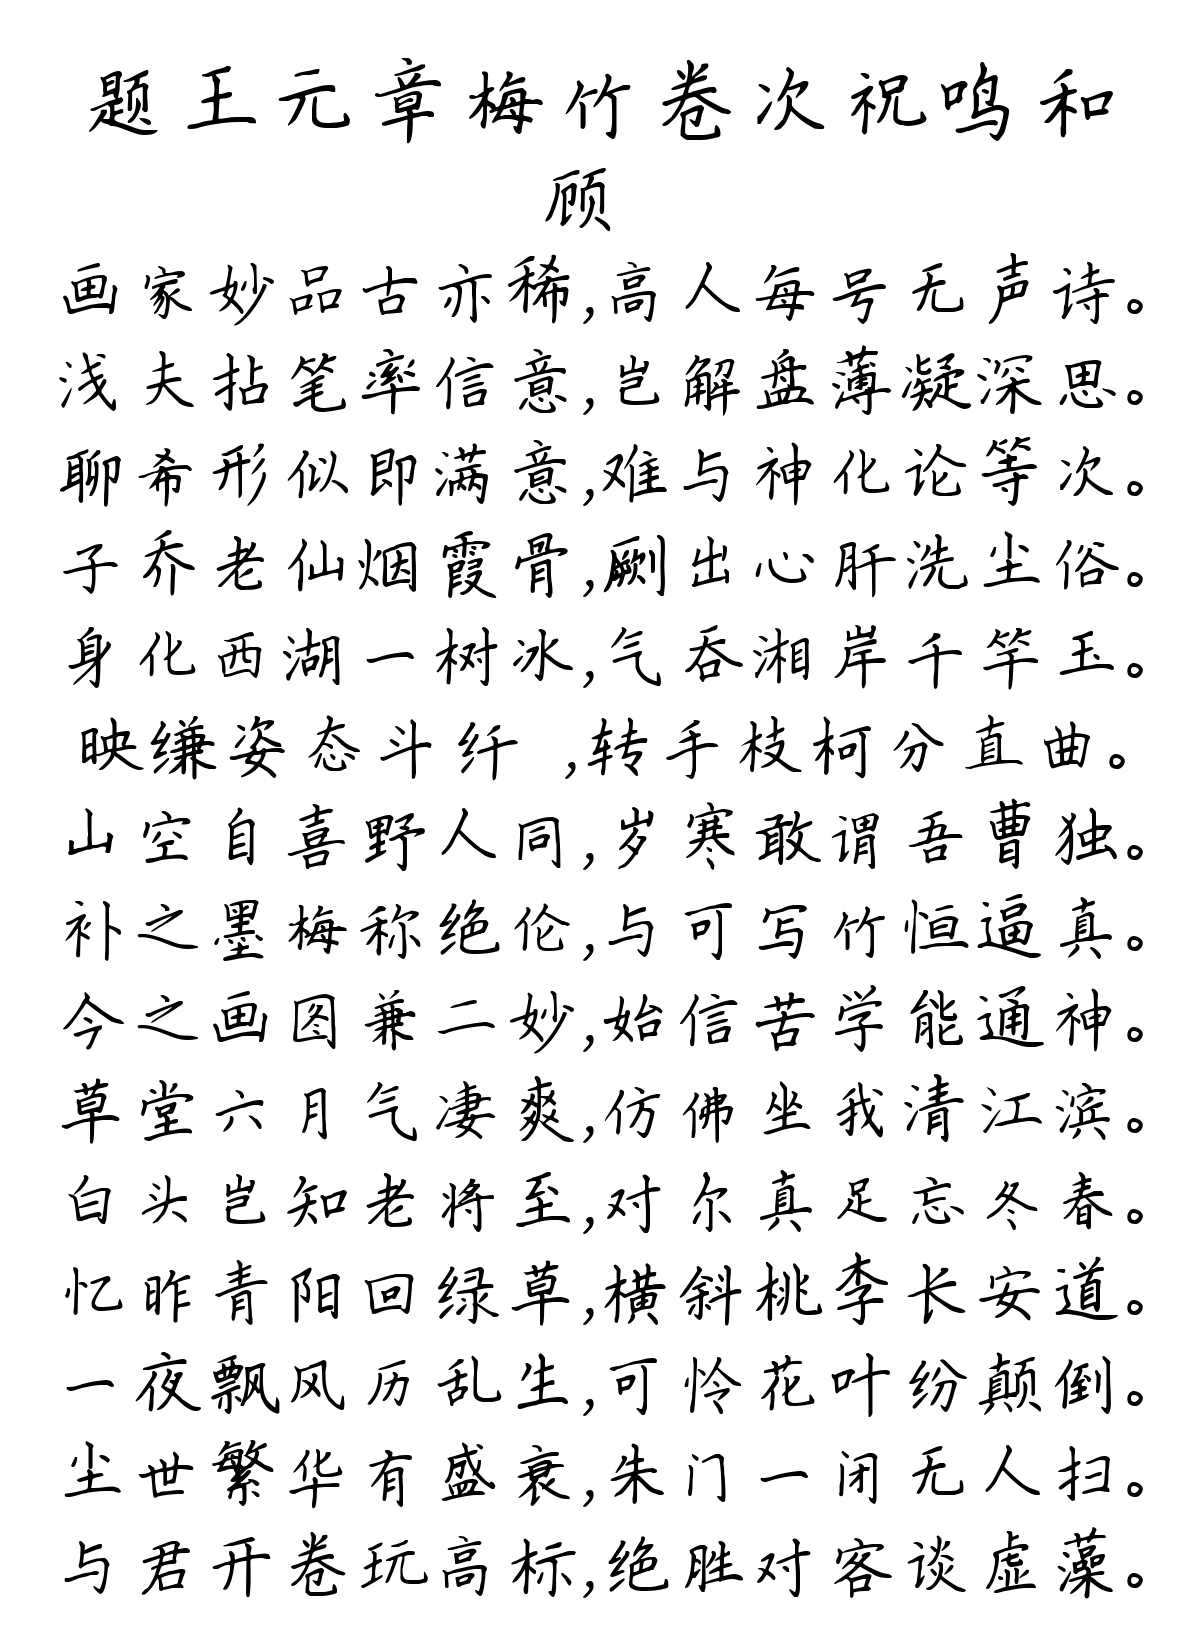 题王元章梅竹卷次祝鸣和
顾
画家妙品古亦稀,高人每号无声诗。
浅夫拈笔率信意,岂解盘薄凝深思。
聊希形似即满意,难与神化论等次。
子乔老仙烟霞骨,劂出心肝洗尘俗。
身化西湖一树冰,气吞湘岸千竿玉。
映缣姿态斗纤 ,转手枝柯分直曲。
山空自喜野人同,岁寒敢谓吾曹独。
补之墨梅称绝伦,与可写竹恒逼真。
今之画图兼二妙,始信苦学能通神。
草堂六月气凄爽,仿佛坐我清江滨。
白头岂知老将至,对尔真足忘冬春。
忆昨青阳回绿草,横斜桃李长安道。
一夜飘风历乱生,可怜花叶纷颠倒。
尘世繁华有盛衰,朱门一闭无人扫。
与君开卷玩高标,绝胜对客谈虚藻。